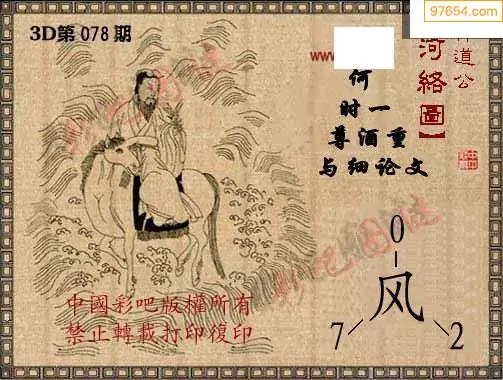 97654.com
3D第078期
www.
道公
河絡圖】
何
时一
尊酒重
与细论文
彩吧图谜
彩吧图谜
0
风
7
2
中國彩吧版權所有
禁止轉載打印復印